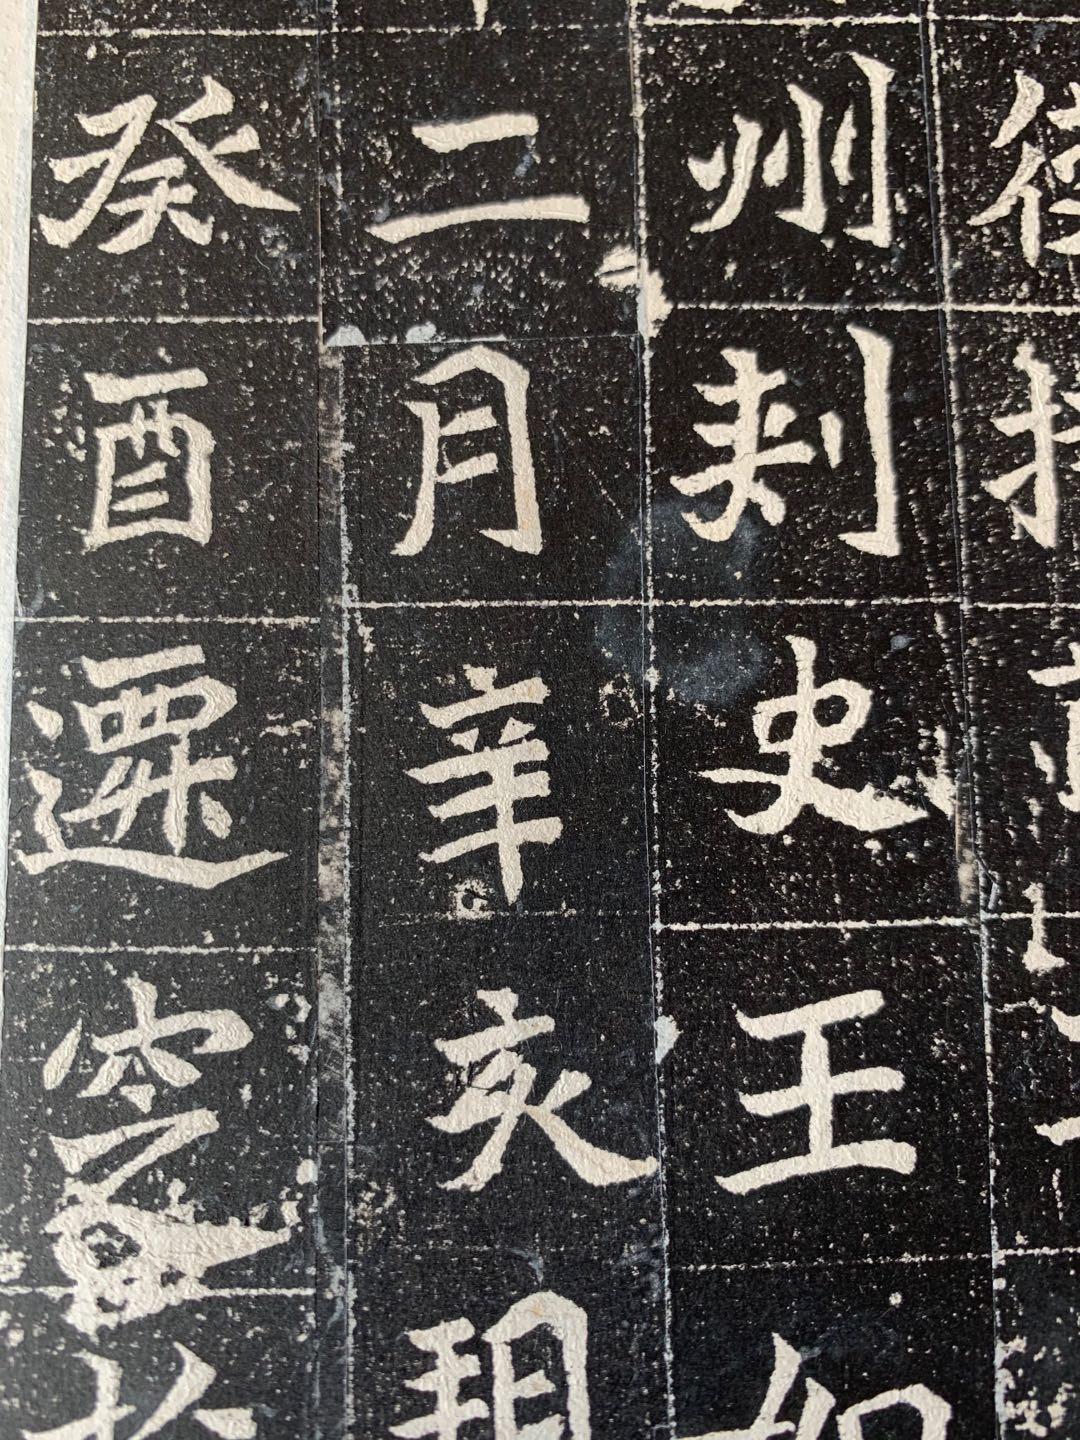 州刾史王如
二月辛亥朔
癸酉遷窆於